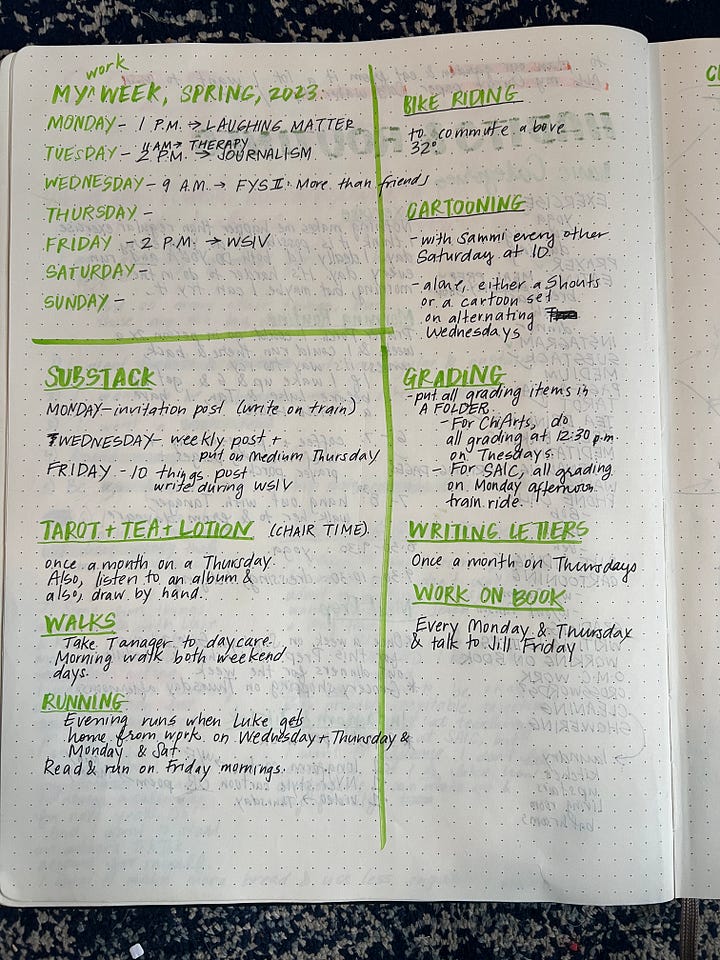 MY work WEEK, SPRING, 2023
MONDAY - 1 P.M. → LAUGHING MATTER
TUESDAY - 11 AM → THERAPY
2 P.M. → JOURNALISM
WEDNESDAY - 9 A.M. → FYS II: More than friends
THURSDAY -
FRIDAY - 2 P.M. → WSIV
SATURDAY -
SUNDAY -
SUBSTACK
MONDAY - invitation post (write on train)
WEDNESDAY - weekly post +
put on Medium Thursday
FRIDAY - 10 things post
write during WSIV
TAROT + TEA + LOTION (CHAIR TIME)
once a month on a Thursday.
Also, listen to an album &
also, draw by hand.
WALKS
Take Tanager to daycare.
Morning walk both weekend
days.
RUNNING
Evening runs when Luke gets
home from work on Wednesday + Thursday &
Monday & Sat.
Read & run on Friday mornings.
BIKE RIDING
to commute above
32°
CARTOONING
- with Sammi every other
Saturday at 10.
- alone, either a Shouts
or a cartoon set
on alternating
Wednesdays
GRADING
- put all grading items in
A FOLDER.
- For ChiArts, do
all grading at 12:30 p.m.
on Tuesdays.
- For SAIC, all grading
on Monday afternoon
train ride.
WRITING LETTERS
Once a month on Thursdays
WORK ON BOOK
Every Monday & Thursday
& talk to Jill Friday